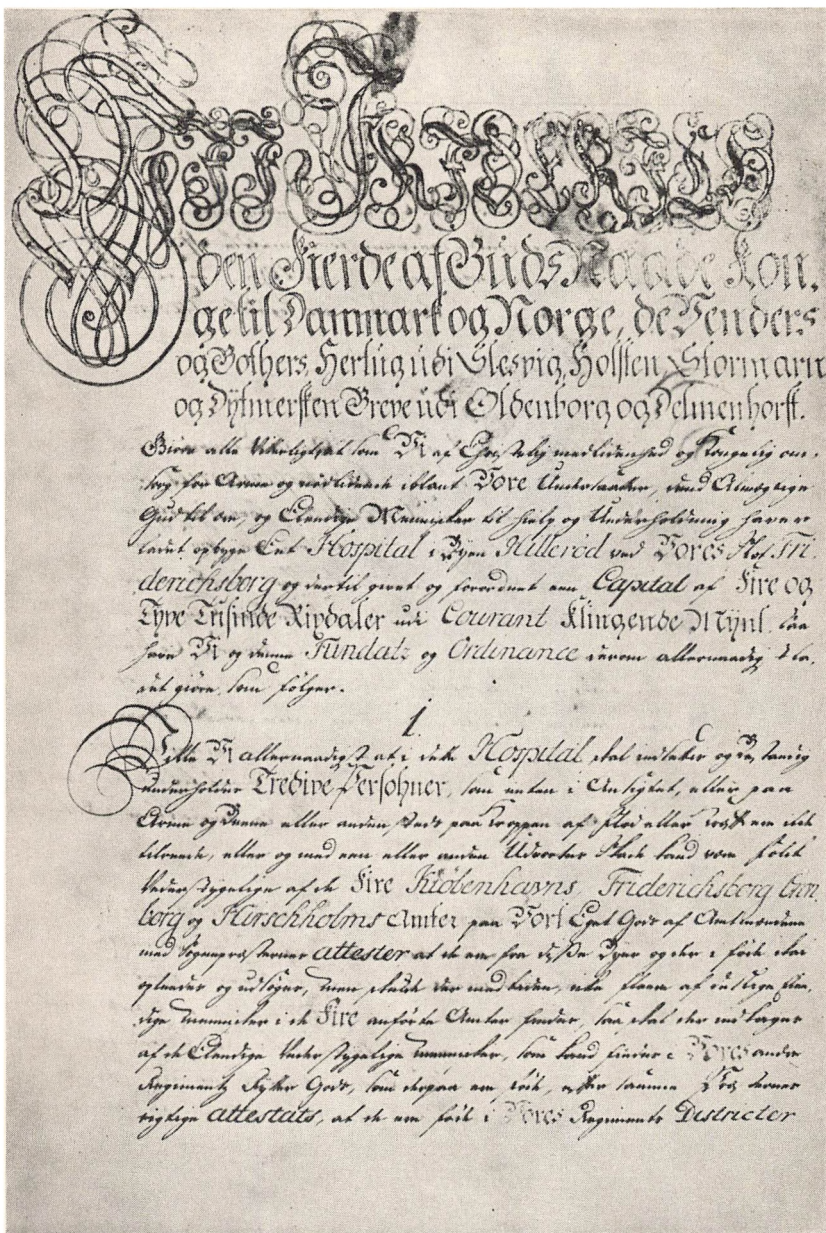 Wii Friderich
den Fierde af Guds Naade Kon-
ge til Danmark og Norge, de Venders
og Gothers, Hertug udi Slesvig, Holsten, Stormarn
og Dytmersken Greve udi Oldenborg og Delmenhorst.
Giøre alle Vitterligt at som Vi af Christelig medlidenhed og Kongelig om-
sorg for Arme og nødlidende iblant Vore Undersaatter, Almegtige
Gud til ære, og Elendige Mennisker til hielp og Underholdning haver
ladet opbyge Eet Hospital i Byen Hillerød ved Vores Slot Fri-
derichsborg og dertil givet og forordnet een Capital af Fire og
Tyve Tusinde Rixdaler udi Courant Klingende Mÿnt. saa
have Vi og denne Fundatz og Ordinance derom allernaadigst la-
det giøre som følger.
1.
Ville Vi allernaadigst at i dette Hospital skal indtages og stendig
underholdes Tredive Persohner, som enten i Ansigtet, eller paa
Arme og Beene eller anden steds paa Kroppen af
eller og med een eller anden Udvortes Skade
Vederstyggelige af de Fire Kiøbenhavns, Friderichsborg Cron-
borg og Hirschholms Amter paa Vort Eget Gods af Amtmændene
med Sognepræsternes attester at de ere fra disse Byer og der i føde skal
opleedes og udsøges, men skulde der med tiden, ikke fleere af deslige Elen-
dige mennisker i de Fire anførte Amter findes, saa skal der indtages
af de Elendige Vederstyggelige mennisker, som kand findes i Vores andre
Regimentz Rytter Gods, som derpaa ere føde, efter samme
rigtige attestats, at de ere fød i Vores Regiments Districter